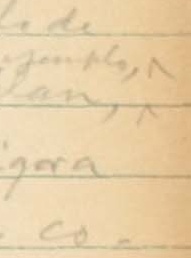 de
ejemplo, ^
lan, ^
igora
- co -